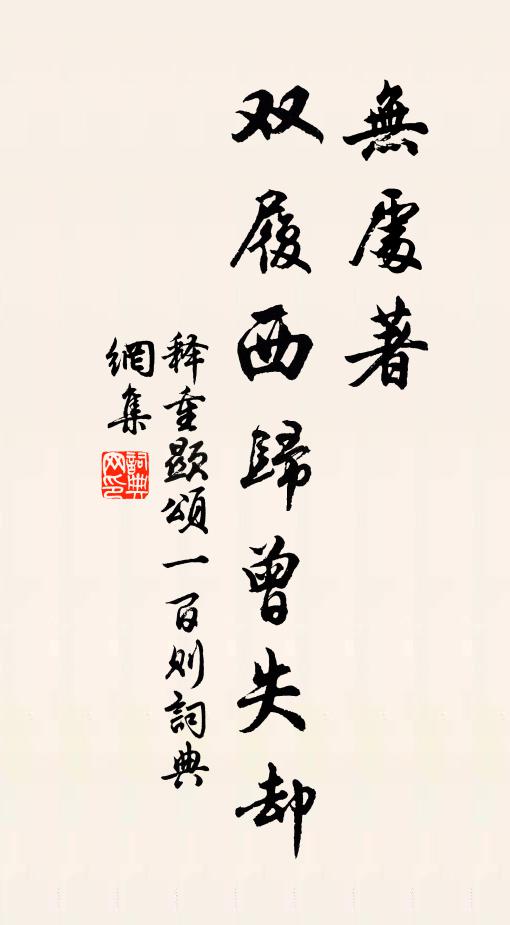 無處著
双履西歸曾失却
释重顯頌一百则詞典
網集
詞典網印